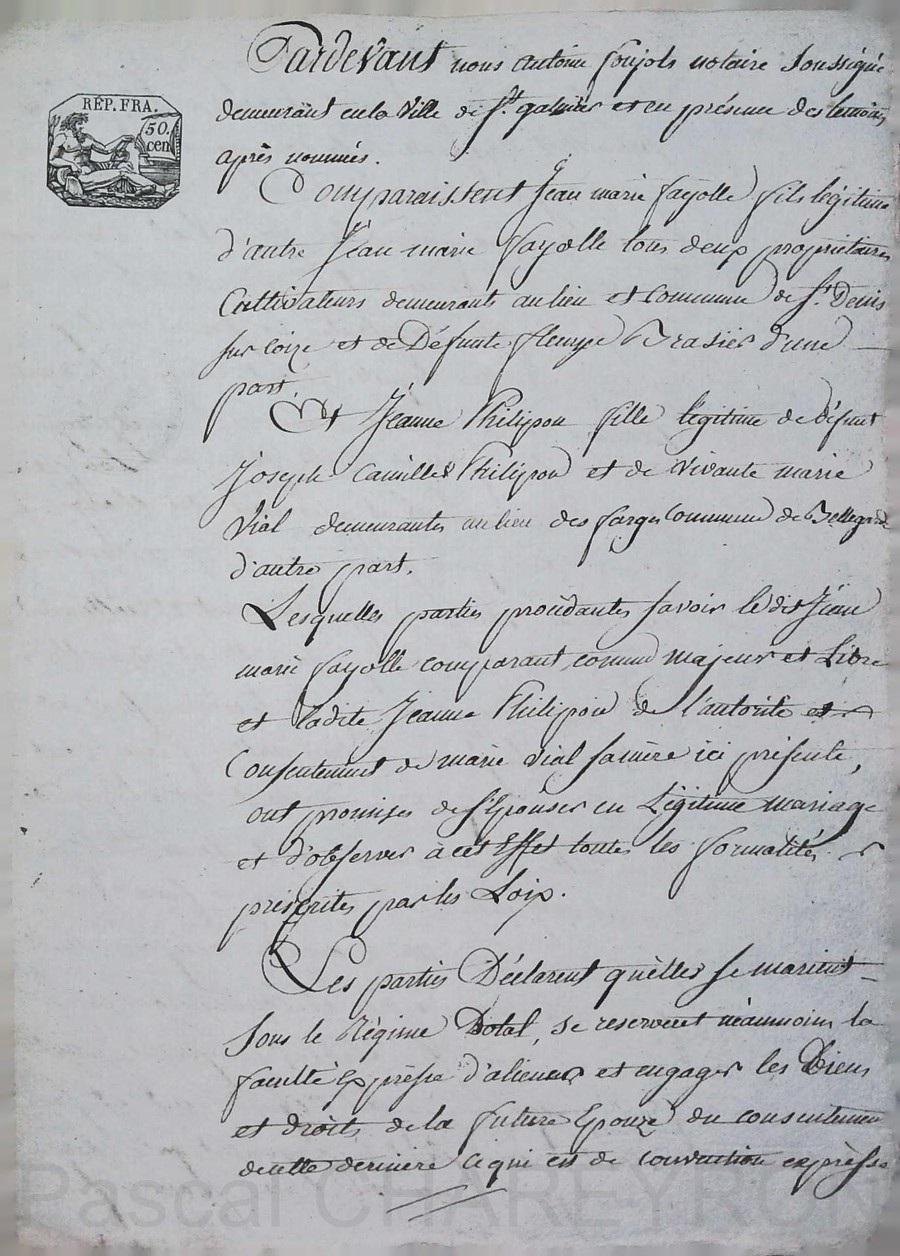 RÉP. FRA.
50.
cen
Pardevant nous antoine foujols notaire soussigné
demeurant en la ville de St. galmier et en présence des témoins
après nommés.
Comparaissent Jean marie fayolle fils légitime
d'autre Jean marie fayolle tous deux propriétaires
Cultivateurs demeurants au lieu et commune de St. Denis
sur coize et de Défunte Brasier d'une
part.
Et Jeanne Philipon fille légitime de défunt
Joseph Camille Philipon et de vivante marie
vial demeurantes au lieu des farges Commune de Bellegarde
d'autre part.
Lesquelles parties procédantes savoir ledit Jean
marie fayolle comparant comme majeur et Libre
et ladite Jeanne Philipon de l'autorité et
Consentement de marie vial sa mère ici présente,
ont promises de s'épouser en Légitime mariage
et d'observer à cet Effet toutes les formalités
prescrites par les Loix.
Les parties Déclarent quèlles se marient
sous le Régime Dotal, se reservent néanmoins la
faculté Expresse d'aliener et engager les Biens
et droits de la future Epouze du consentement
de cette dernière ce qui est de convention expresse
Pascal CHAREYRON